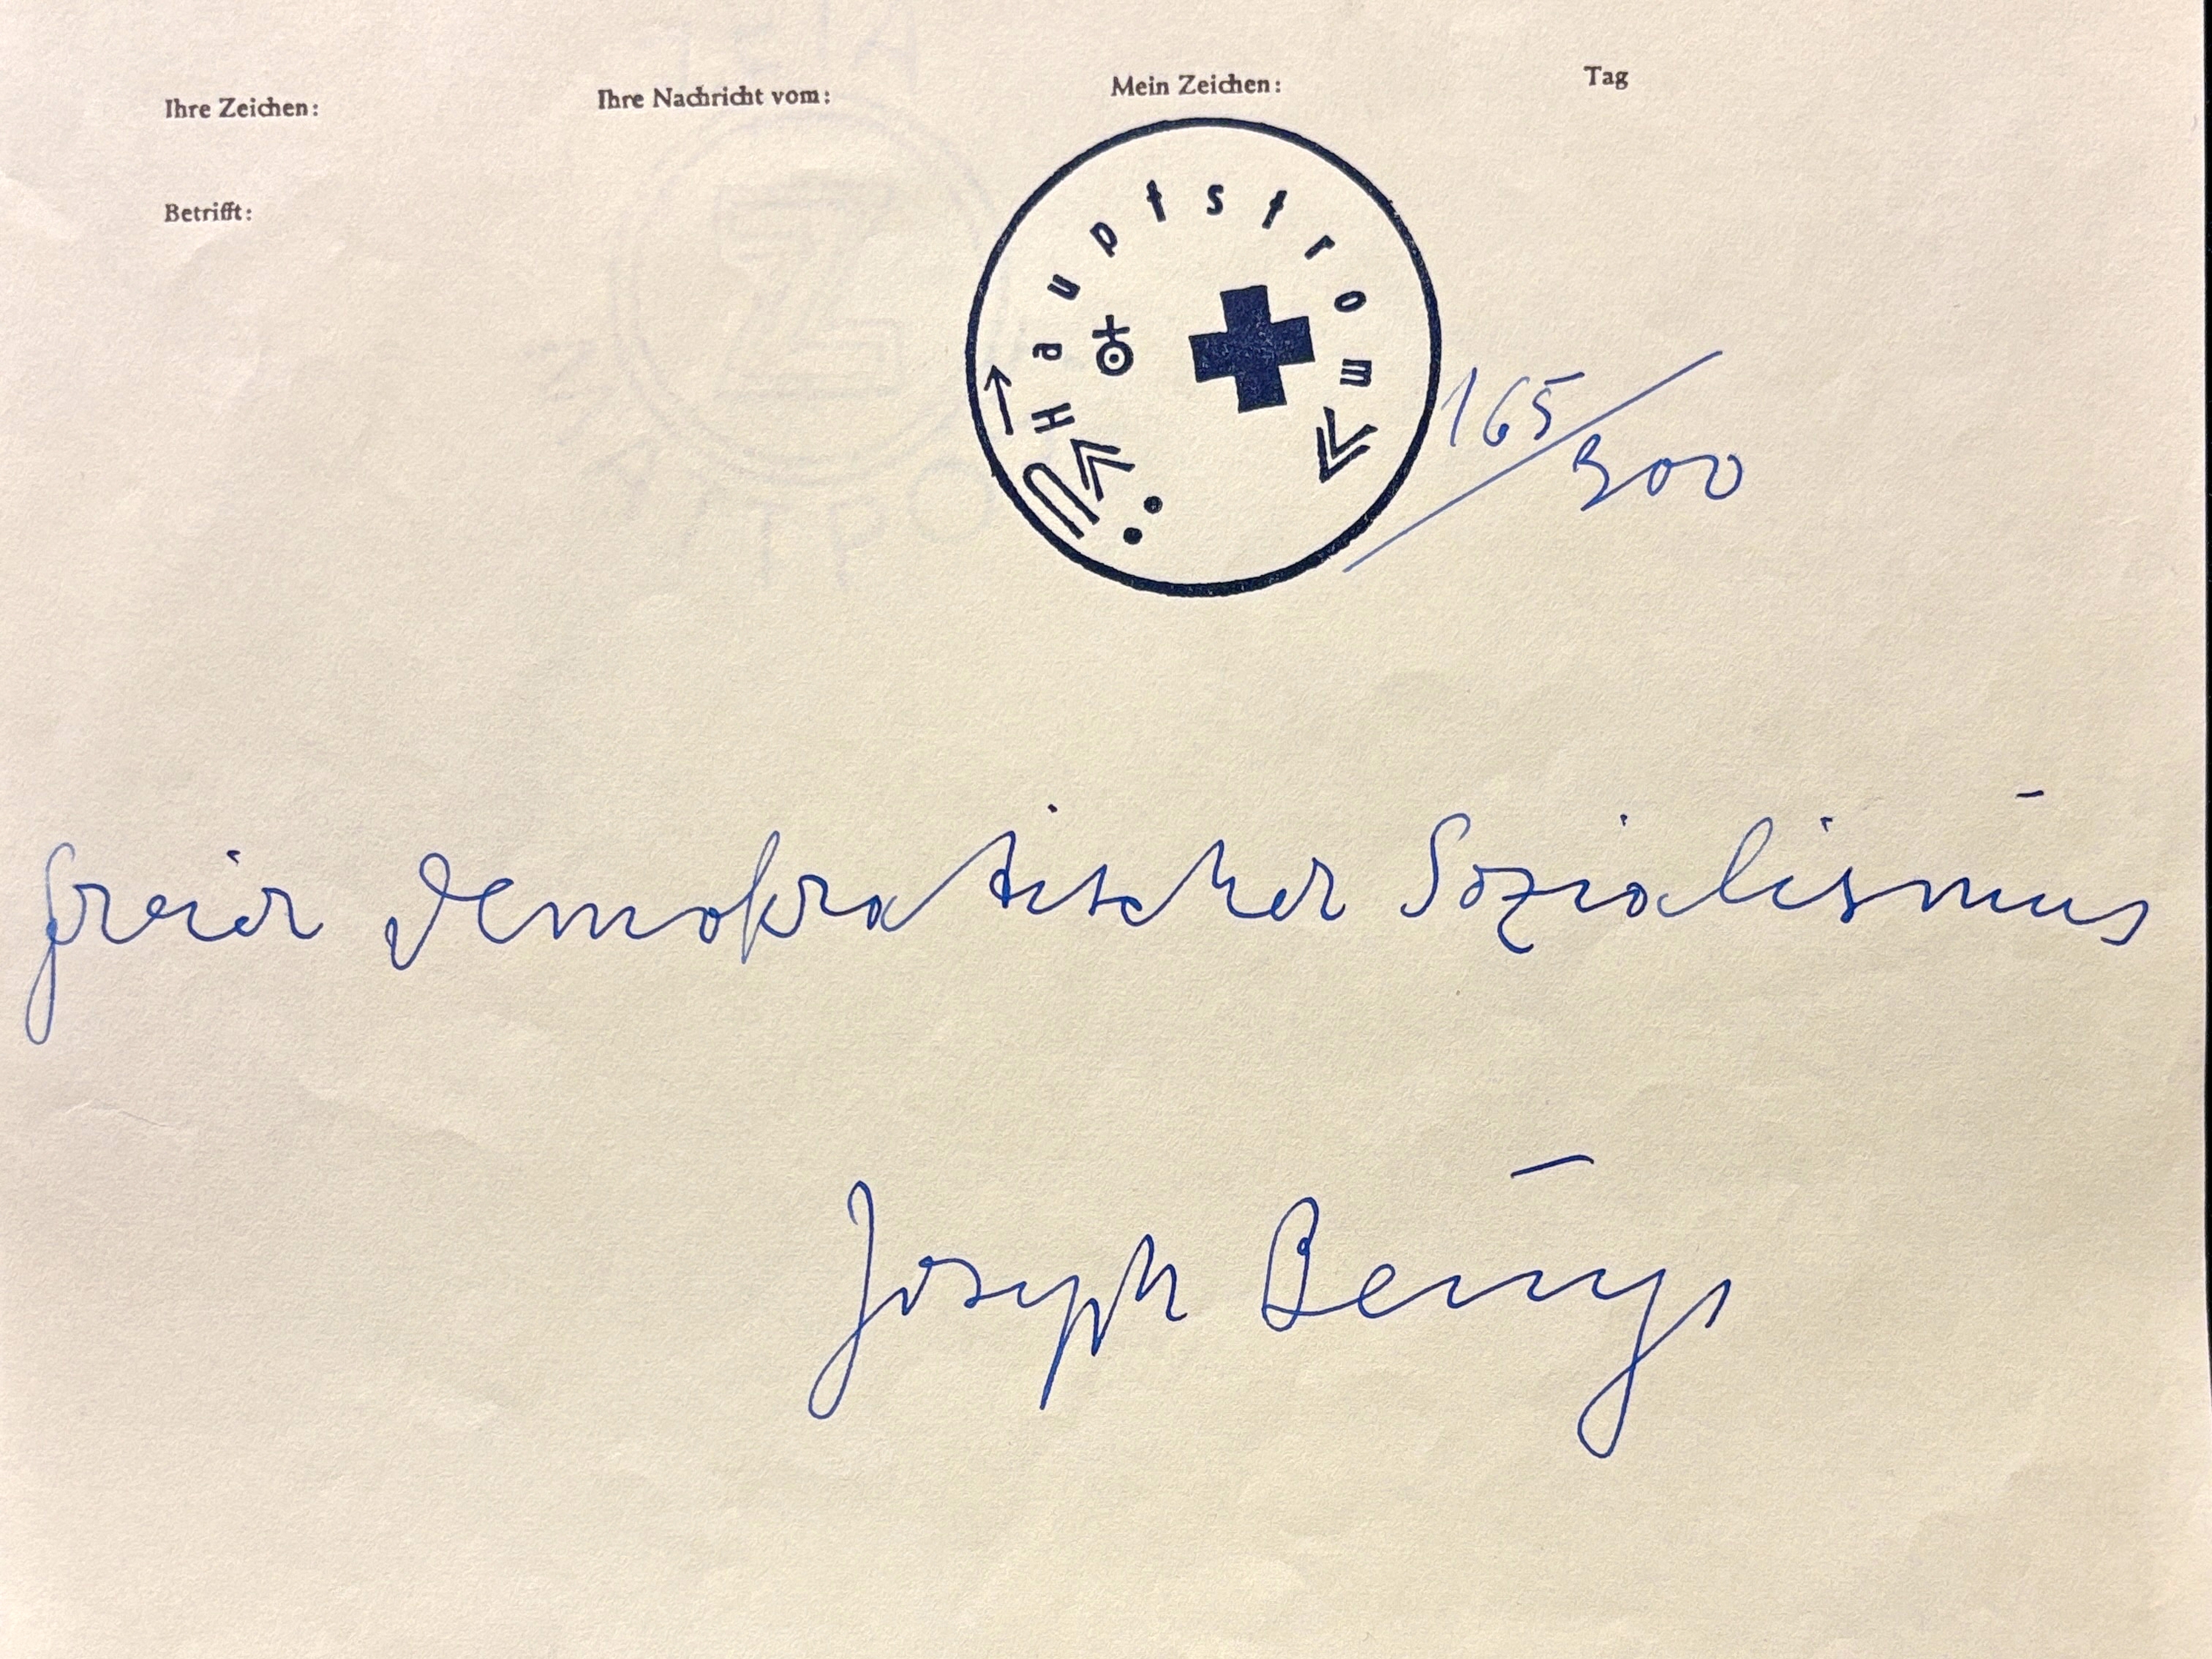 Ihre Zeichen:
Ihre Nachricht vom:
Mein Zeichen:
Tag
Betrifft:
Hauptstrom
165/300
freier demokratischer Sozialismus
Joseph Beuys